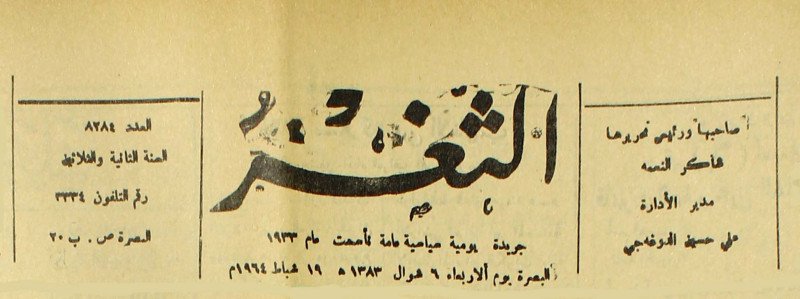 صاحبها ورئيس تحريرها
شاكر النعمه
مدير الأدارة
علي حسين الدوغجي
الثغر
جريدة يومية سياسية عامة تأسست عام ١٩٣٣
البصرة يوم ألاربعاء ٦ شوال ١٣٨٣ ه ١٩ شباط ١٩٦٤م
العدد ٨٢٨٤
السنة الثانية والثلاثين
رقم التلفون ٣٣٣٤
البصرة ص . ب ٢٠